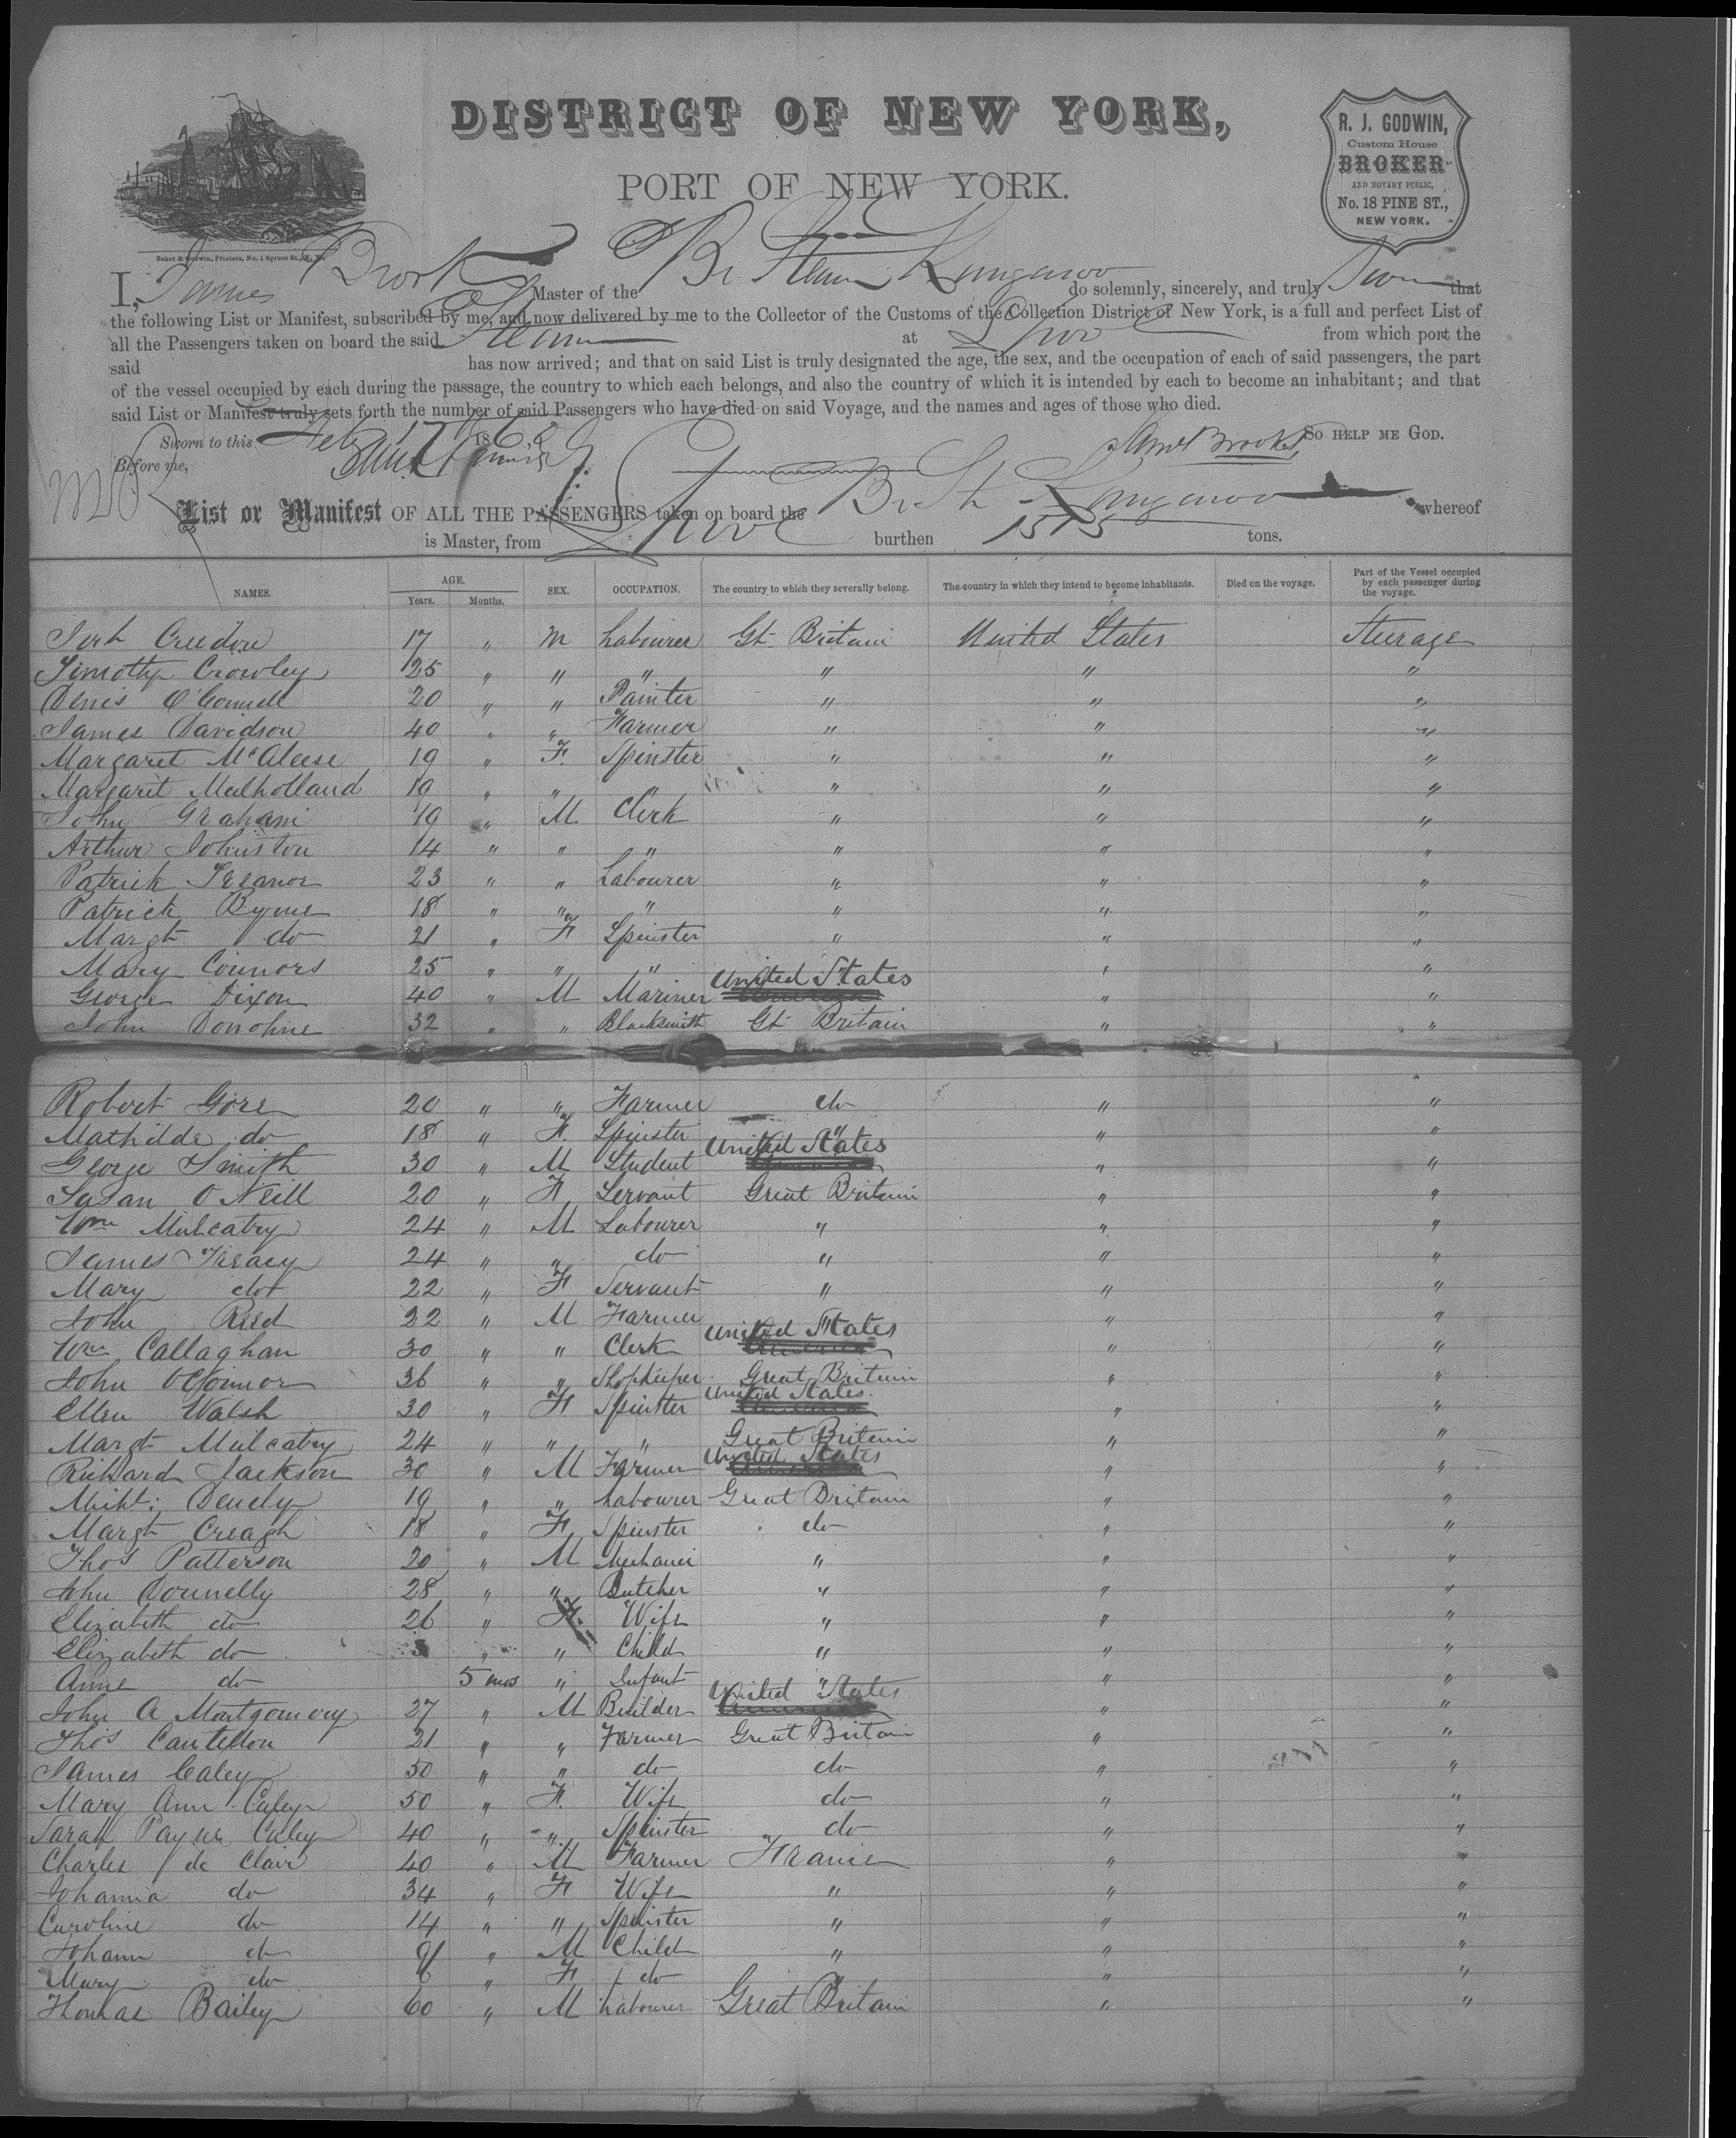 DISTRICT OF NEW YORK,
PORT OF NEW YORK.
R. J. GODWIN,
Custom House
BROKER
AND NOTARY PUBLIC,
No. 18 PINE ST.,
NEW YORK.
Baker & Godwin, Printers, No. 1 Spruce St., N. Y.
I, James Brooks Master of the Br Steam Kangaroo do solemnly, sincerely, and truly Swear that
the following List or Manifest, subscribed by me, and now delivered by me to the Collector of the Customs of the Collection District of New York, is a full and perfect List of
all the Passengers taken on board the said Steam at Lpool from which port the
said has now arrived; and that on said List is truly designated the age, the sex, and the occupation of each of said passengers, the part
of the vessel occupied by each during the passage, the country to which each belongs, and also the country of which it is intended by each to become an inhabitant; and that
said List or Manifest truly sets forth the number of said Passengers who have died on said Voyage, and the names and ages of those who died.
Sworn to this Feb 17 186 SO HELP ME GOD.
Before me, James Brooks
List or Manifest OF ALL THE PASSENGERS taken on board the Br St Kangaroo whereof
is Master, from Lpool burthen 1575 tons.
NAMES. AGE. Years. Months. SEX. OCCUPATION. The country to which they severally belong. The country in which they intend to become inhabitants. Died on the voyage. Part of the Vessel occupied by each passenger during the voyage.
Jerh Creedon 17 " M Labourer Gt Britain United States Steerage
Timothy Crowley 25 " " " " " "
Denis O'Connell 20 " " Painter " " "
James Davidson 40 " " Farmer " " "
Margaret McAleese 19 " F. Spinster " " "
Margaret Mulholland 19 " " " " " "
John Graham 19 " M Clerk " " "
Arthur Johnston 14 " " " " " "
Patrick Treanor 23 " " Labourer " " "
Patrick Byrne 18 " " " " " "
Margt do 21 " F Spinster " " "
Mary Connors 25 " " " " "
George Dixon 40 " M Mariner United States " "
John Donohue 32 " " Blacksmith Gt Britain " "
Robert Gore 20 " " Farmer do " "
Mathilda do 18 " F. Spinster " " "
George Smith 30 " M Student United States " "
Susan O'Neill 20 " F Servant Great Britain " "
Wm Mulcahy 24 " M Labourer " " "
James Treacy 24 " " do " " "
Mary do 22 " F Servant " " "
John Reed 22 " M Farmer " "
Wm Callaghan 30 " " Clerk United States " "
John O'Connor 36 " " Shopkeeper Great Britain " "
Ellen Walsh 30 " F Spinster United States " "
Margt Mulcahy 24 " " " Great Britain " "
Richard Jackson 30 " M Farmer United States " "
Michl: Dendy 19 " " Labourer Great Britain " "
Margt Creagh 18 " F Spinster do " "
Thos Patterson 20 " M Mechanic " " "
John Donnelly 28 " " Butcher " " "
Elizabeth do 26 " F. Wife " " "
Elizabeth do 3 " " Child " " "
Anne do 5 mos " Infant " "
John A Montgomery 27 " M Builder United States " "
Thos Cantillon 21 " " Farmer Great Britain " "
James Caley 50 " " do do " "
Mary Ann Caley 50 " F. Wife do " "
Sarah Payne Caley 40 " " Spinster do " "
Charles de Clair 40 " M Farmer France " "
Johanna do 34 " F Wife " " "
Caroline do 14 " " Spinster " " "
Johann do 9 " M Child " " "
Mary do 6 " F do " " "
Thomas Bailey 60 " M Labourer Great Britain " "